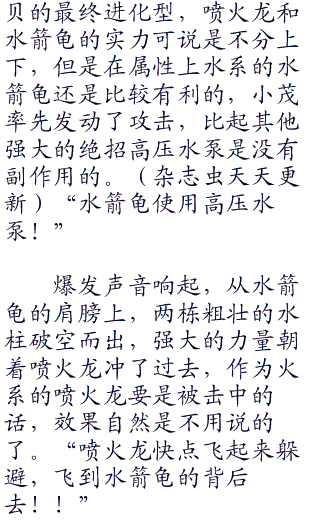 贝的最终进化型，喷火龙和
水箭龟的实力可说是不分上
下，但是在属性上水系的水
箭龟还是比较有利的，小茂
率先发动了攻击，比起其他
强大的绝招高压水泵是没有
副作用的。（杂志虫天天更
新）“水箭龟使用高压水
泵！”
爆发声音响起，从水箭
龟的肩膀上，两栋粗壮的水
柱破空而出，强大的力量朝
着喷火龙冲了过去，作为火
系的喷火龙要是被击中的
话，效果自然是不用说的
了。“喷火龙快点飞起来躲
避，飞到水箭龟的背后
去！！”